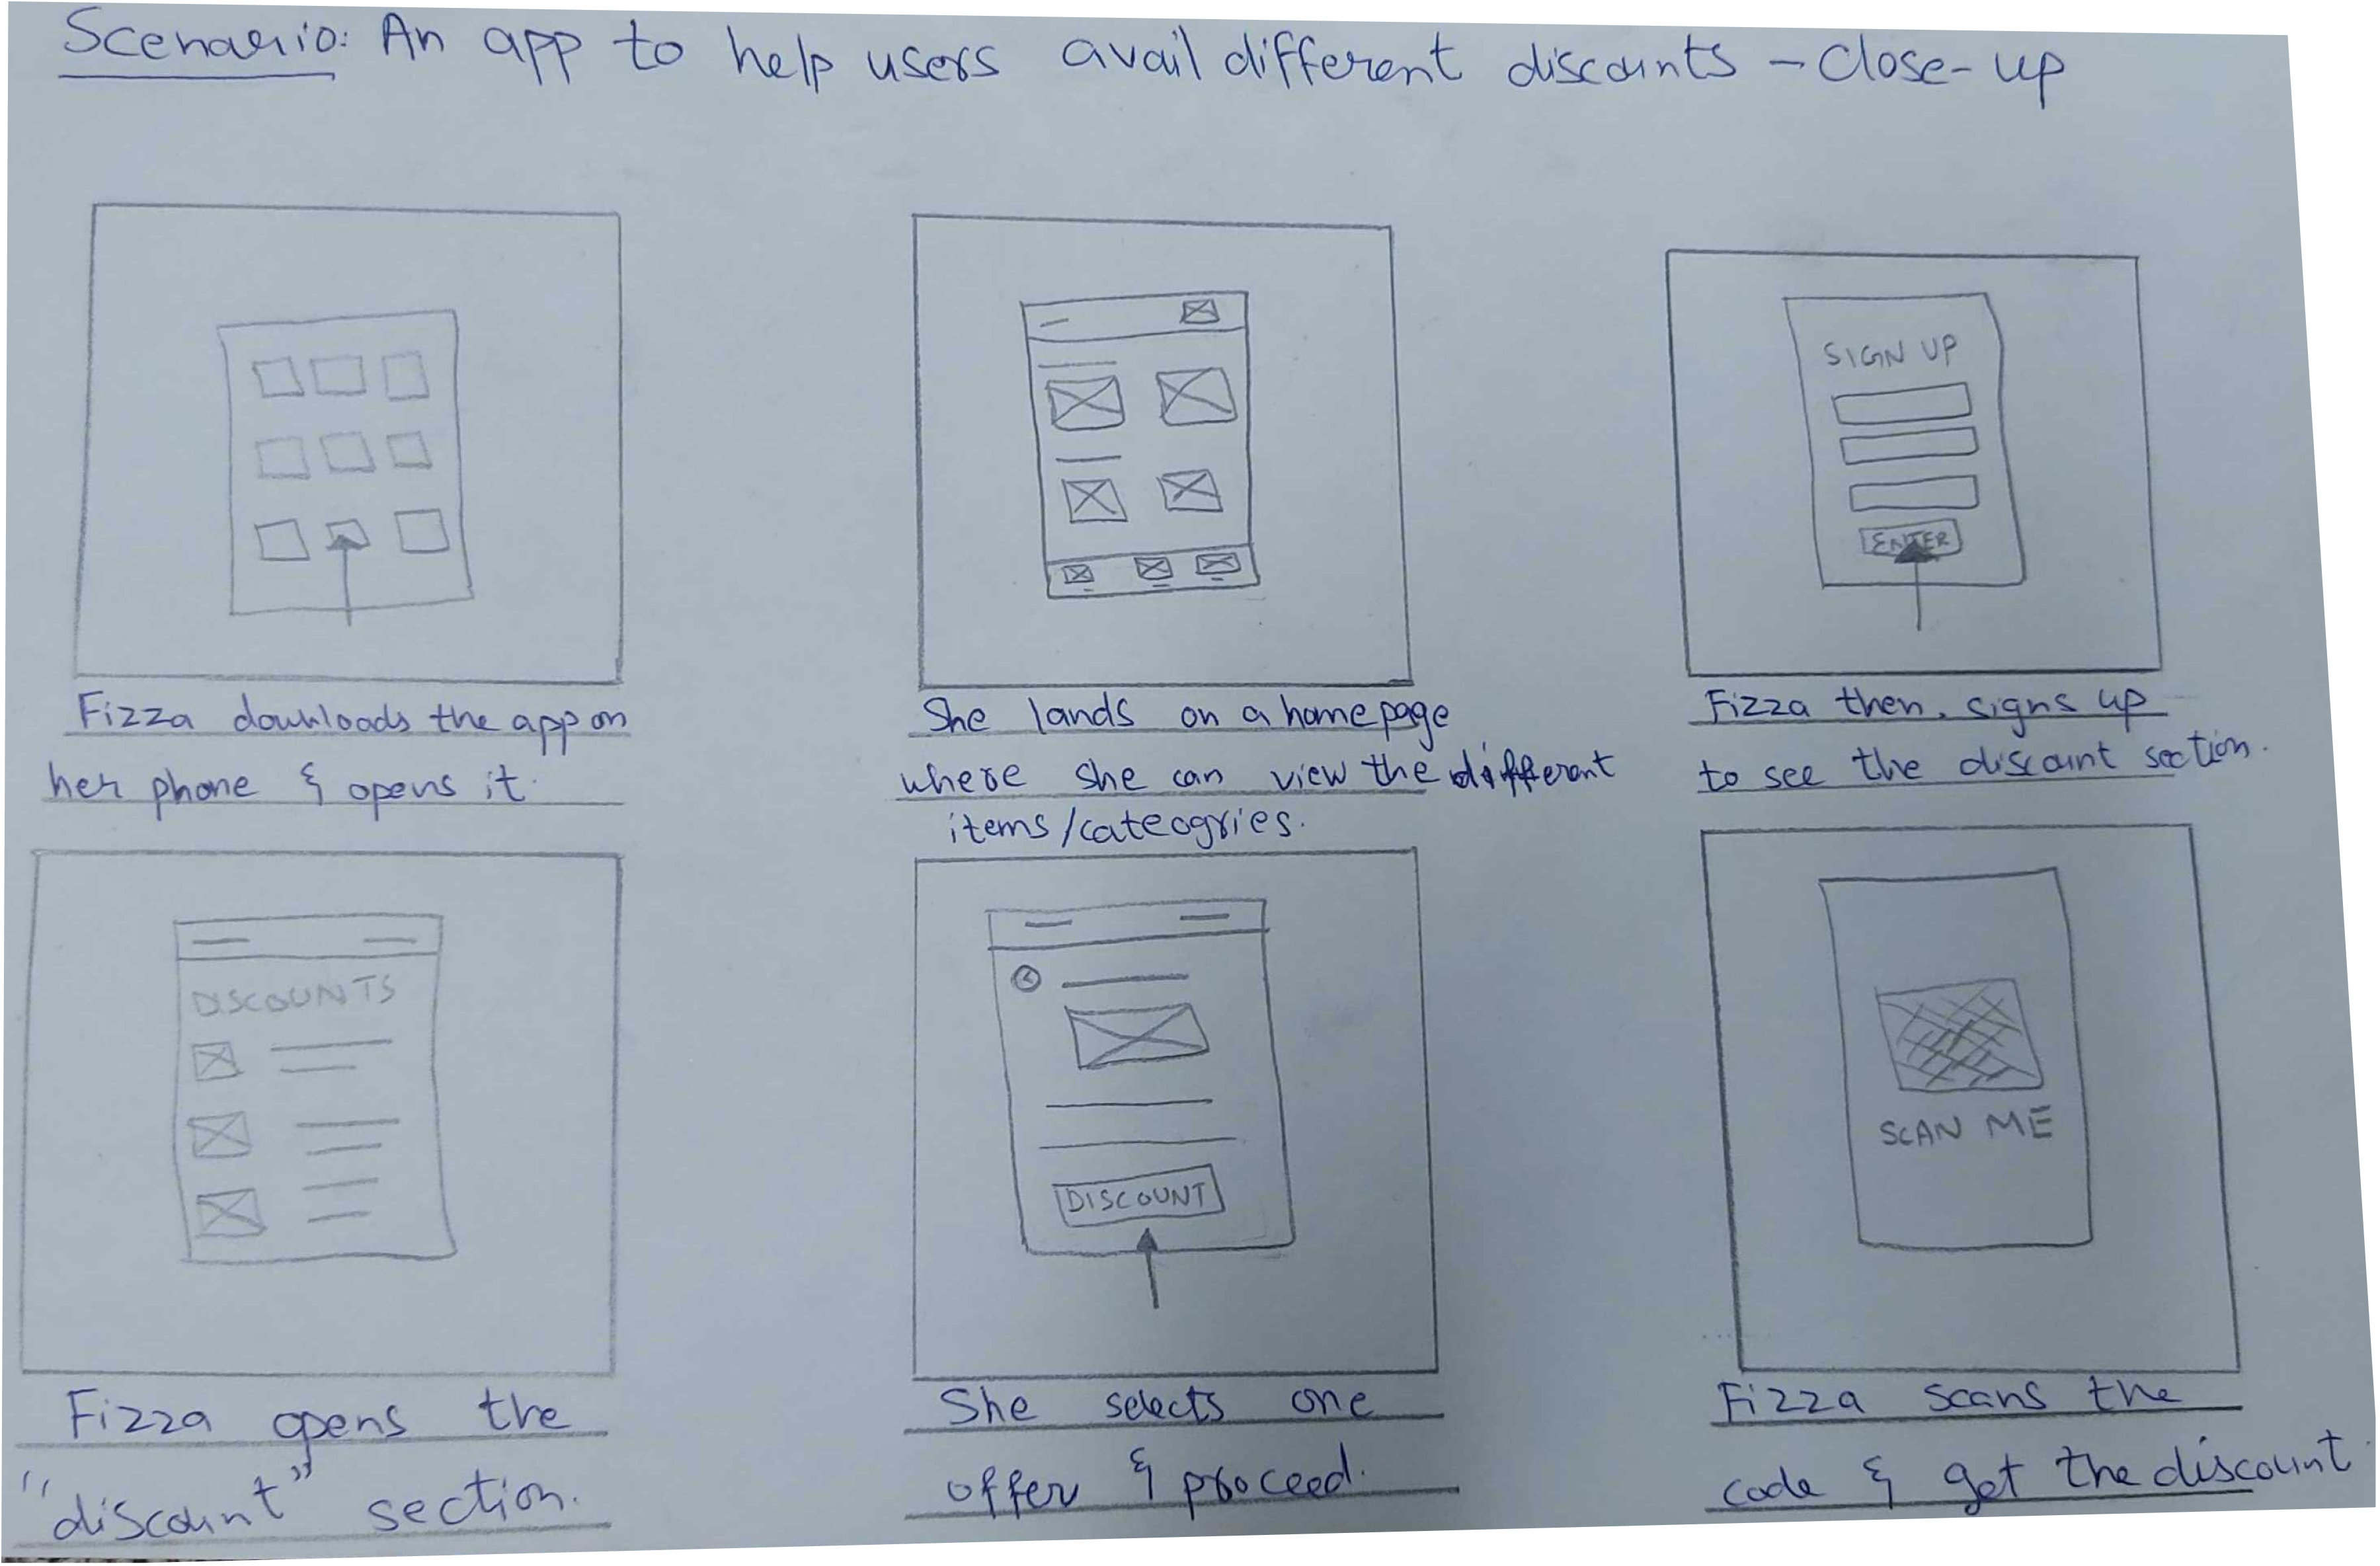 Scenario: An app to help users avail different discounts - Close-up
SIGN UP
ENTER
Fizza downloads the app on
her phone & opens it.
She lands on a homepage
where she can view the different
items/cateogries.
Fizza then, signs up
to see the discount section.
DISCOUNTS
DISCOUNT
SCAN ME
Fizza opens the
"discount" section.
She selects one
offer & proceed.
Fizza scans the
code & get the discount